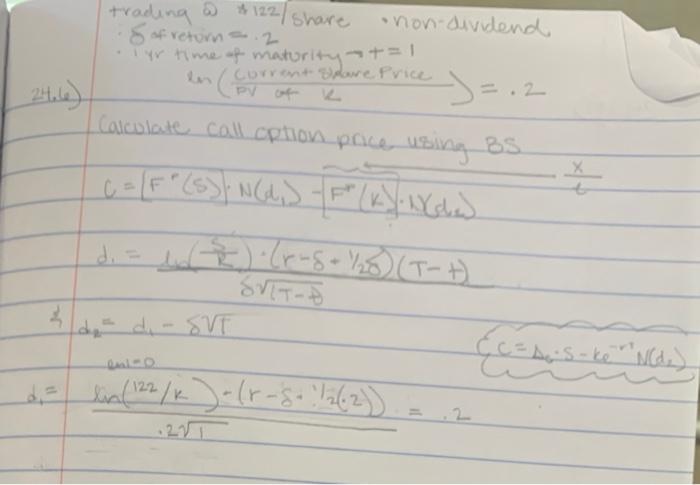 trading @ $122/share • non-dividend
: δ of return = .2
• 1 yr time of maturity → t = 1
24.6) ln ( Current Share Price / PV of K ) = .2
Calculate call option price using BS
x / t
C = [F^P(S)] · N(d₁) - [F^P(K)] · N(d₂)
d₁ = ln(S/K) · (r - δ + 1/2δ)(T - t) / δ√(T - t)
& d₂ = d₁ - δ√T
C = Δc · S - ke^-rt N(d₂)
ln1=0
d₁ = ln(122/K) - (r - δ + 1/2(.2)) / .2√1 = .2